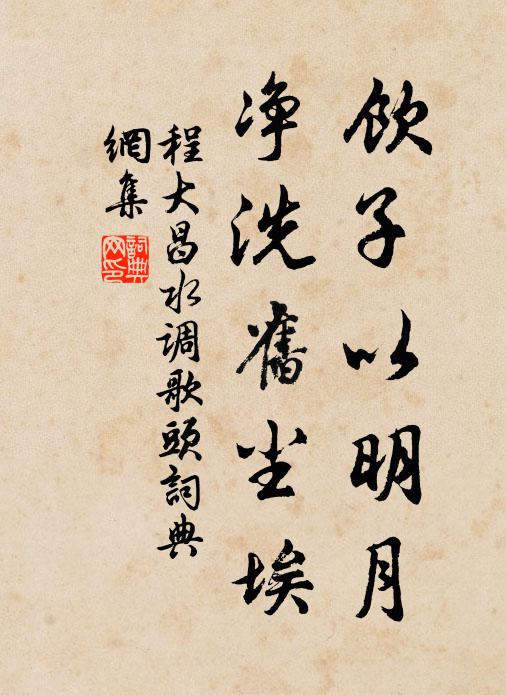 飲子以明月
净洗舊尘埃
程大昌水调歌頭詞典
網集
詞典
网印